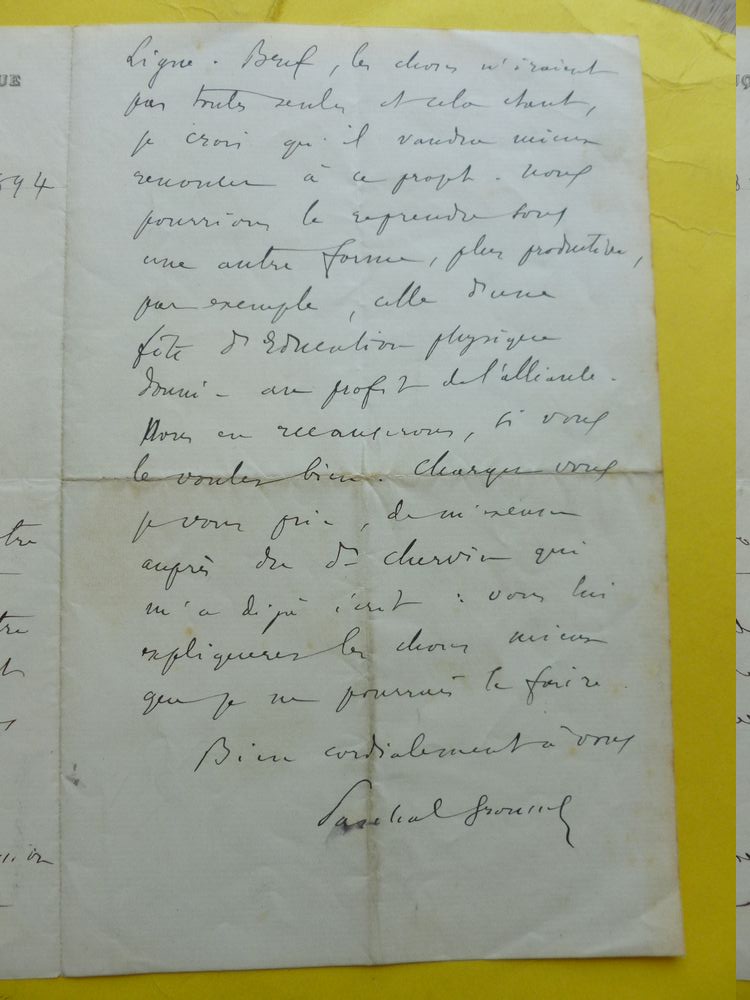 UE
94
Ligue. Bref, les choses n'iraient
pas toutes seules et cela étant,
je crois qu'il vaudra mieux
renoncer à ce projet. Nous
pourrions le reprendre sous
une autre forme, plus productive,
par exemple, celle d'une
fête d'Education physique
donnée au profit de l'alliance.
Nous en recauserons, si vous
le voulez bien. Chargez vous
je vous prie, de m'excuser
auprès du Dr Chervin qui
m'a déjà écrit : vous lui
expliquerez les choses mieux
que je ne pourrais le faire
Bien cordialement à vous
Paschal Grousset